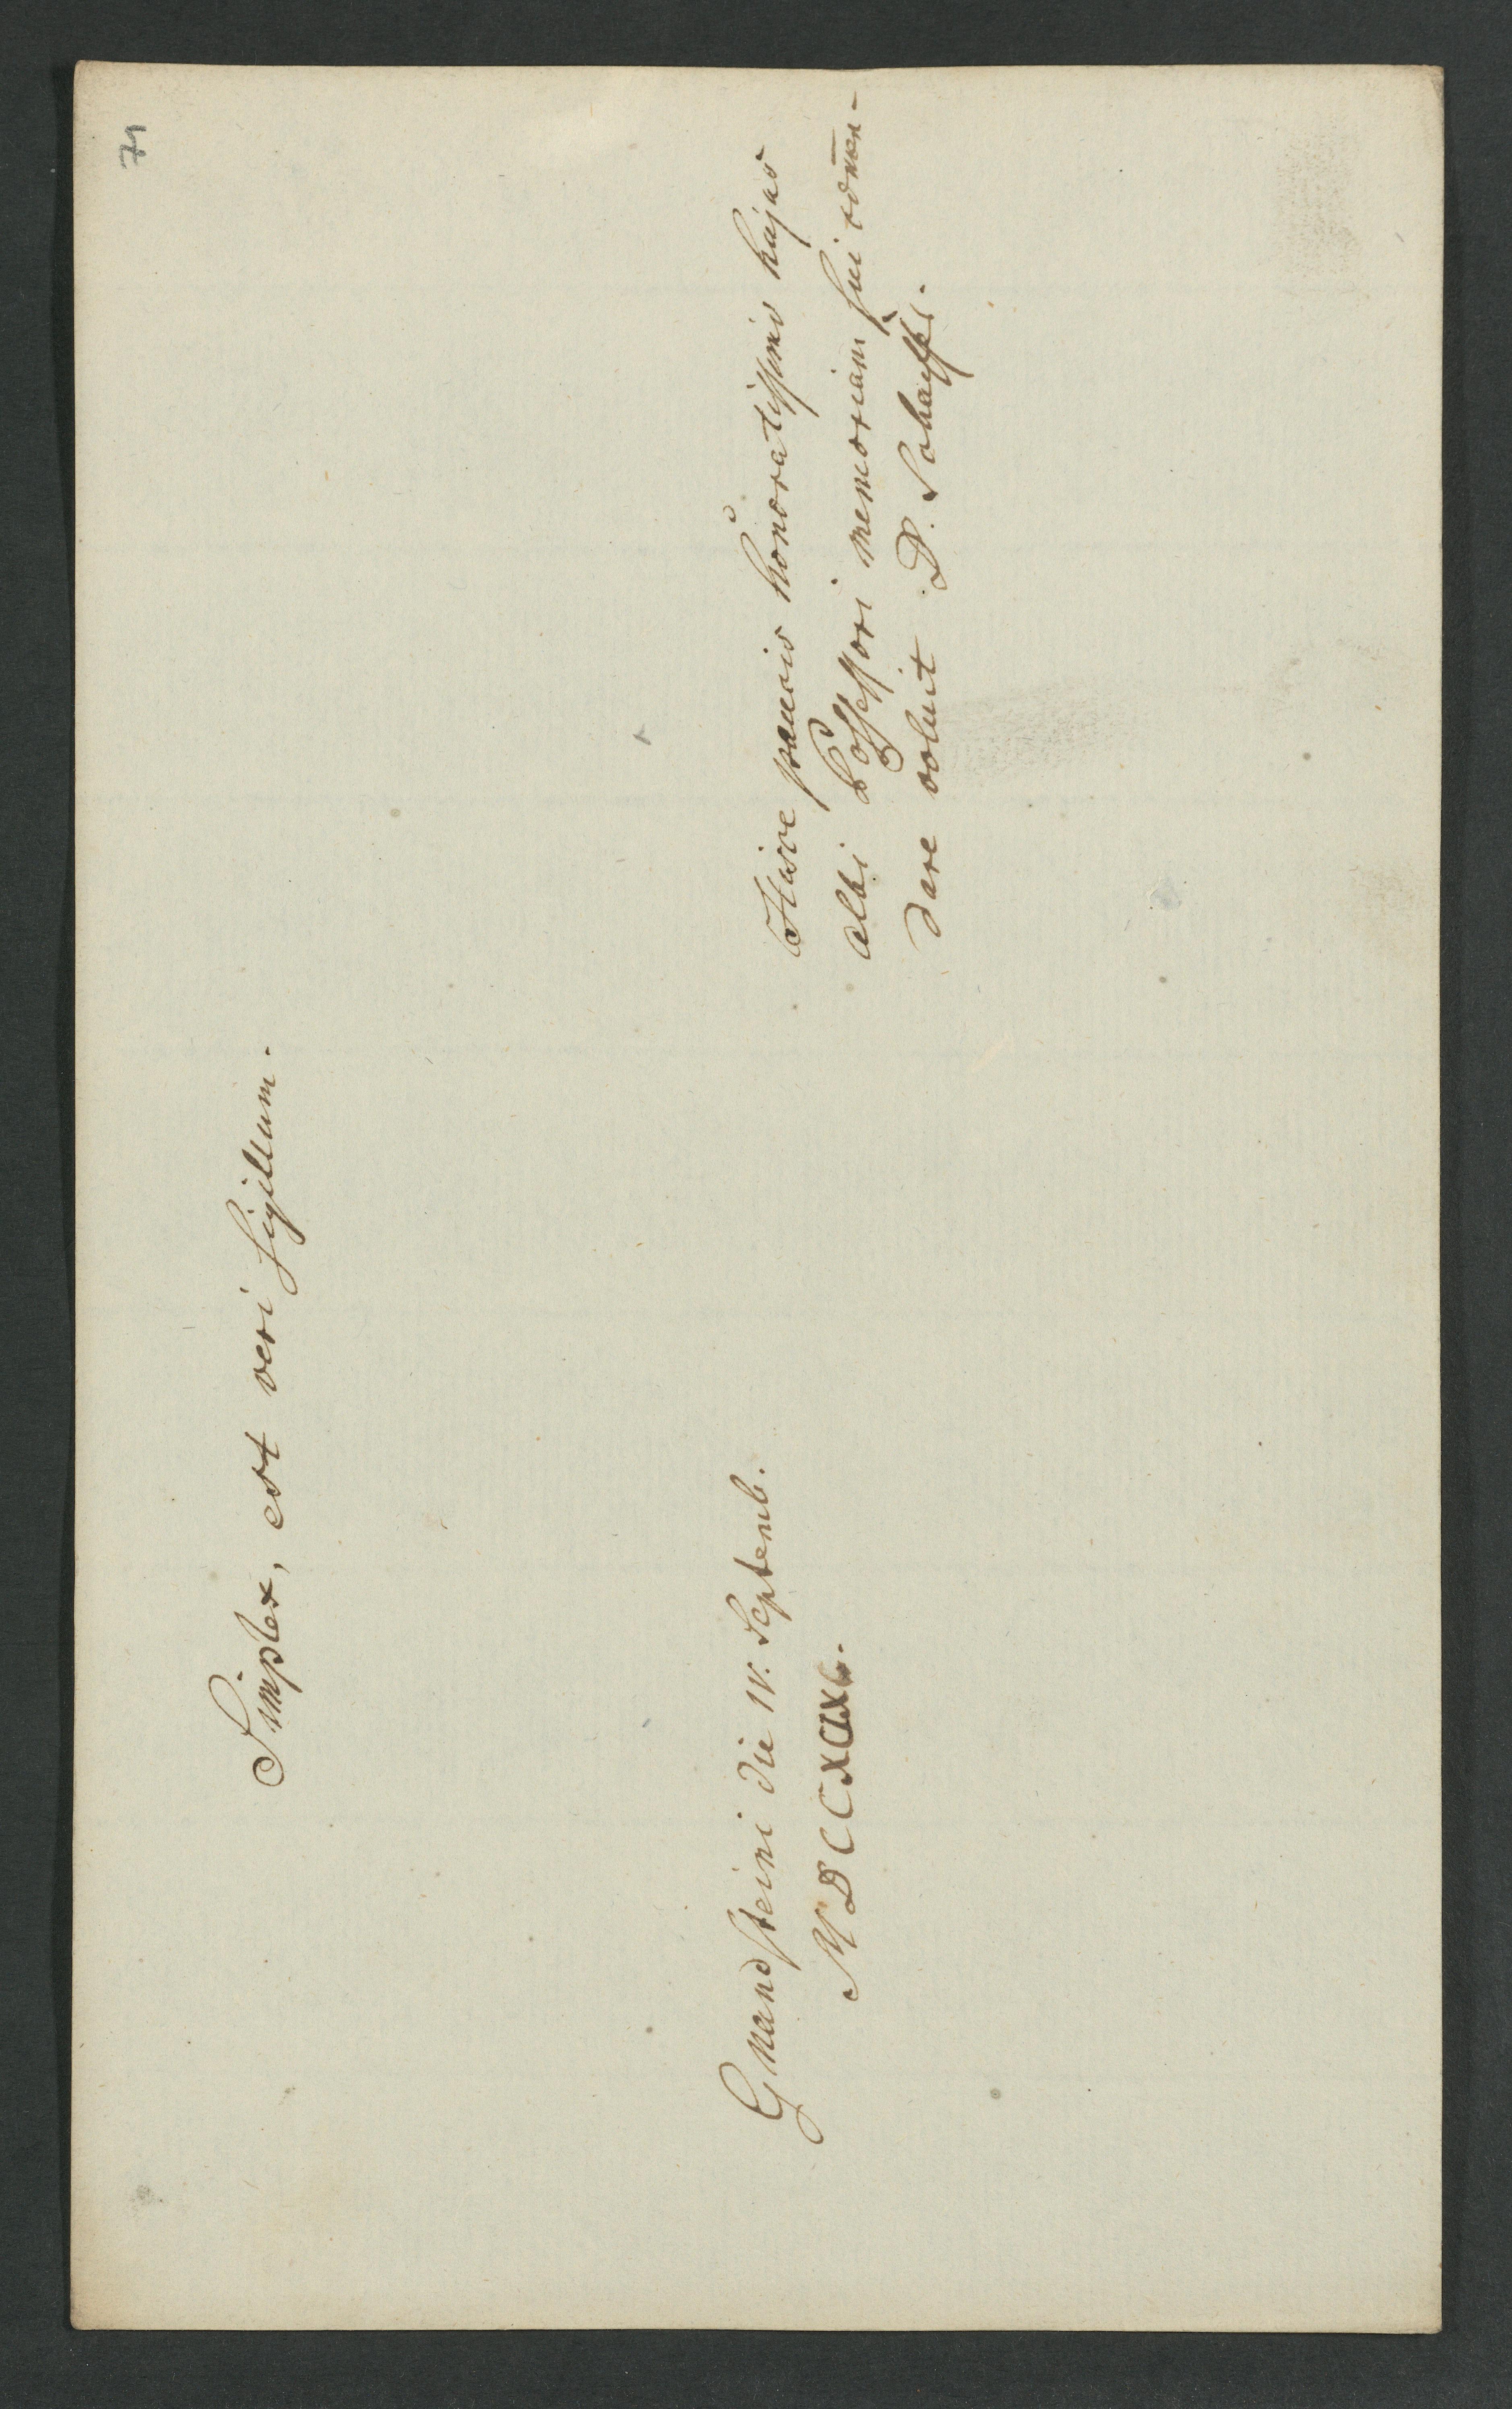 71
Simplex, est veri sigillum.
Gnandsteini die IV. Septemb.
MDCCXC
Hisce paucis honoratissimo hujus
albi Possessori memoriam sui com̄en-
dare voluit D.